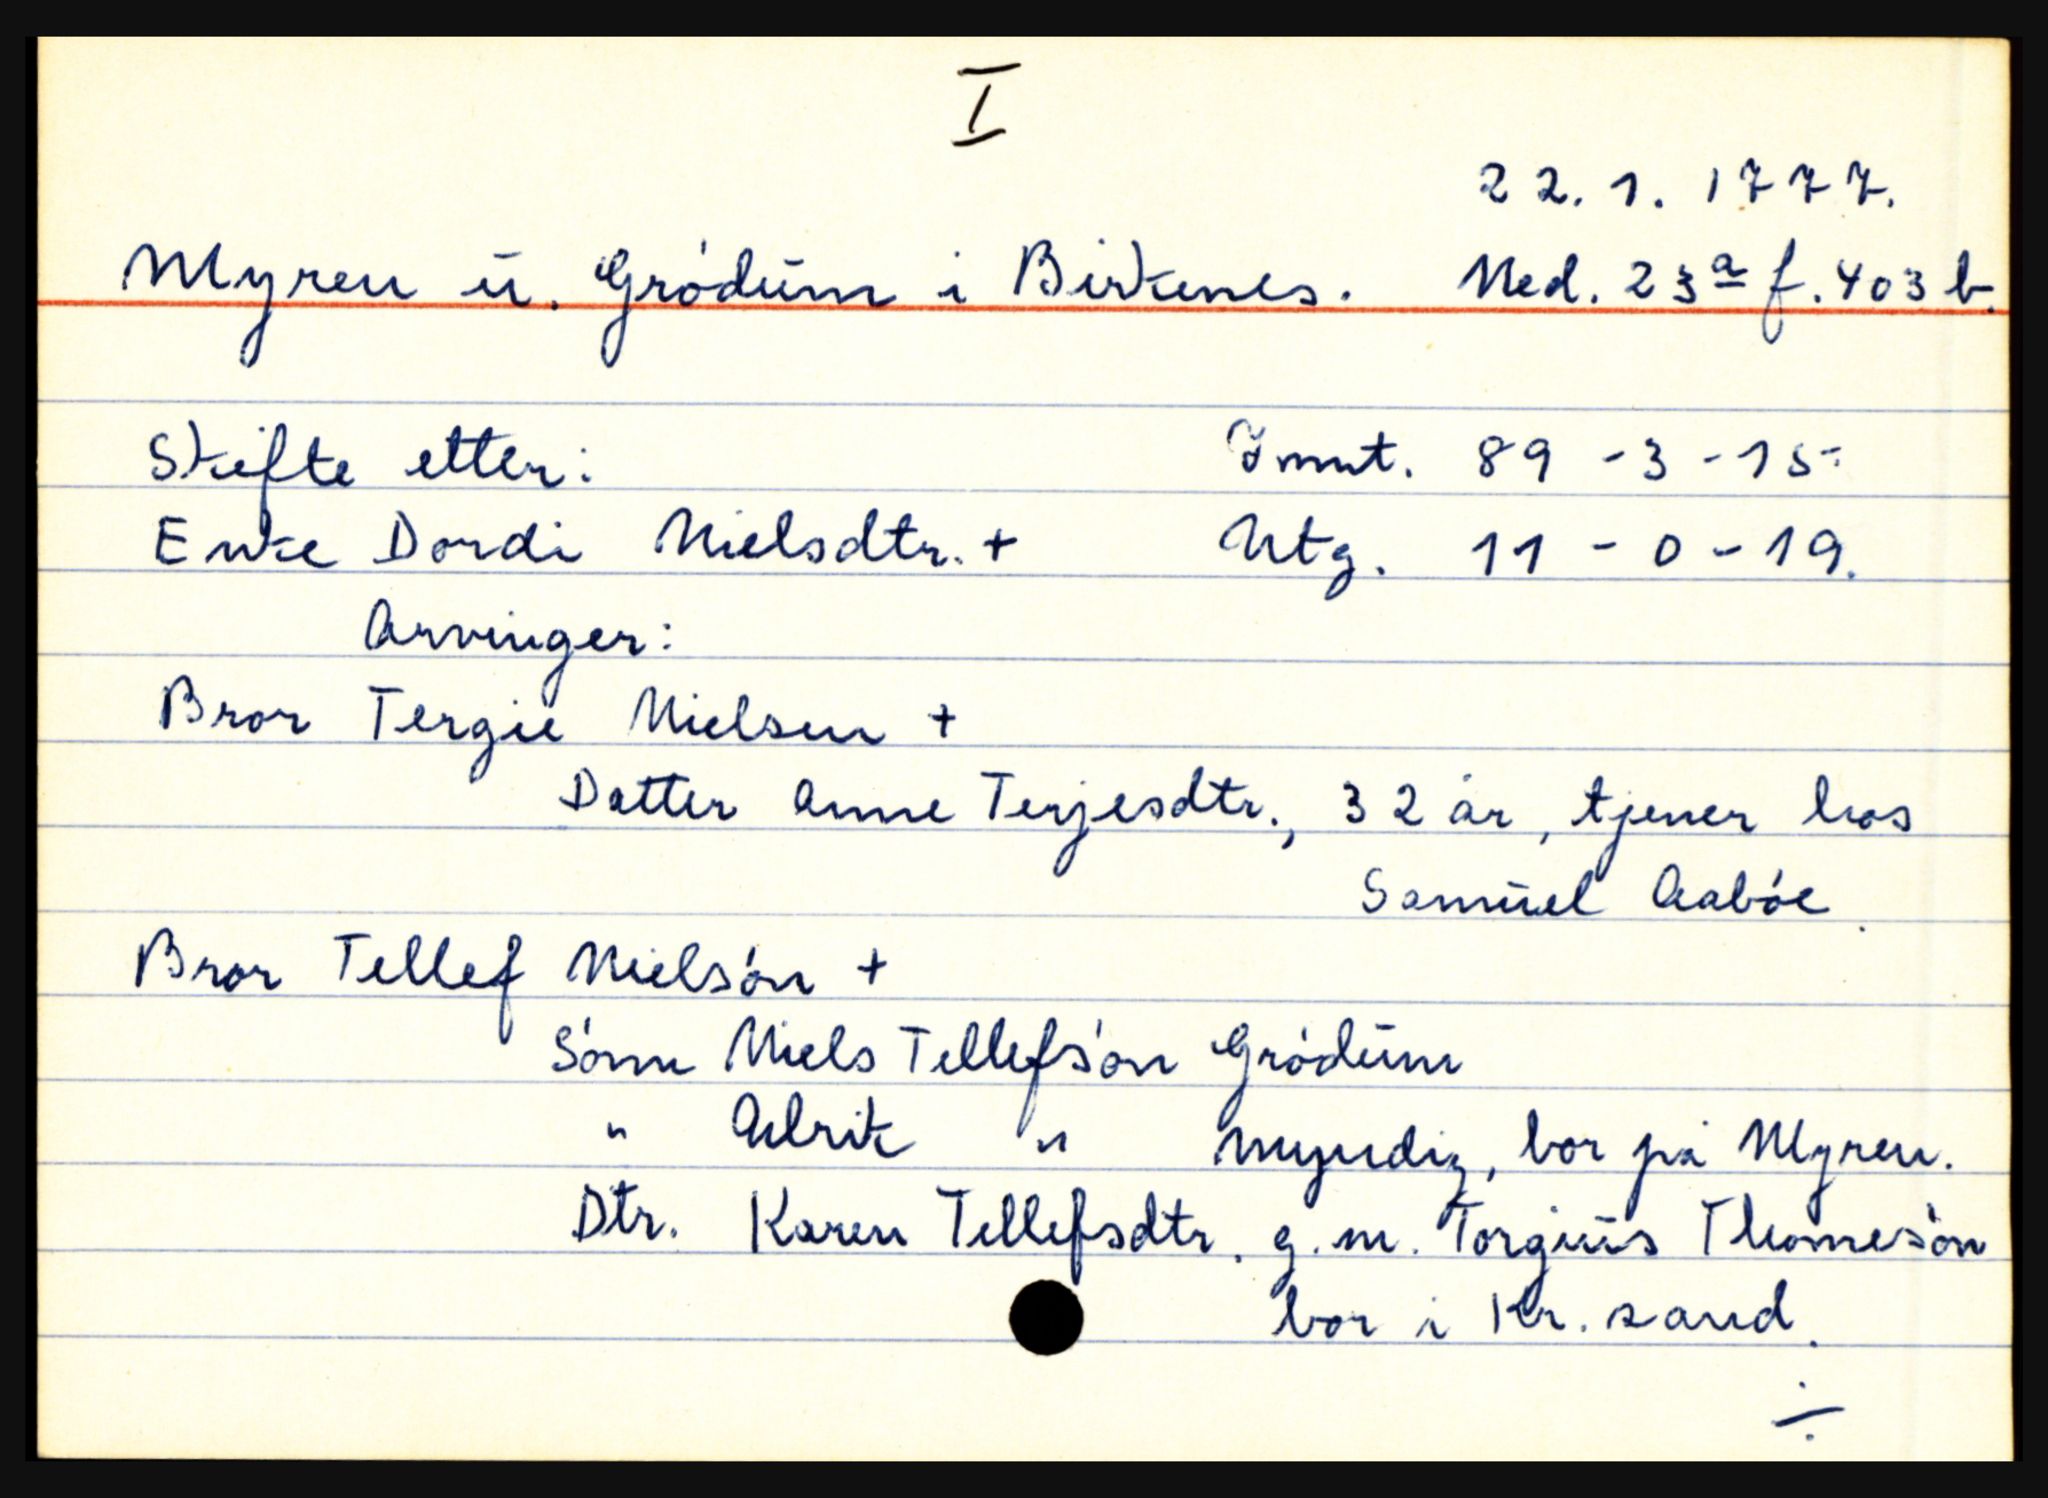 I
22.1.1777.
Myren ū. Gródūm i Birkenes. Ned. 23a f. 403 b.
Skifte etter: Innt. 89-3-15-
Enke Dordi Nielsdtr. + Utg. 11-0-19.
Arvinger:
Bror Tergie Nielsen +
Datter Anne Terjesdtr., 32 år, tjener hos
Samūel Aabóe.
Bror Tellef Nielsón +
Sónn Niels Tellefsón Gródūm
" Alrik " myndig, bor på Myren.
Dtr. Karen Tellefsdtr. g.m. Torgiūs Thomesón
bor i Kr.sand.
÷